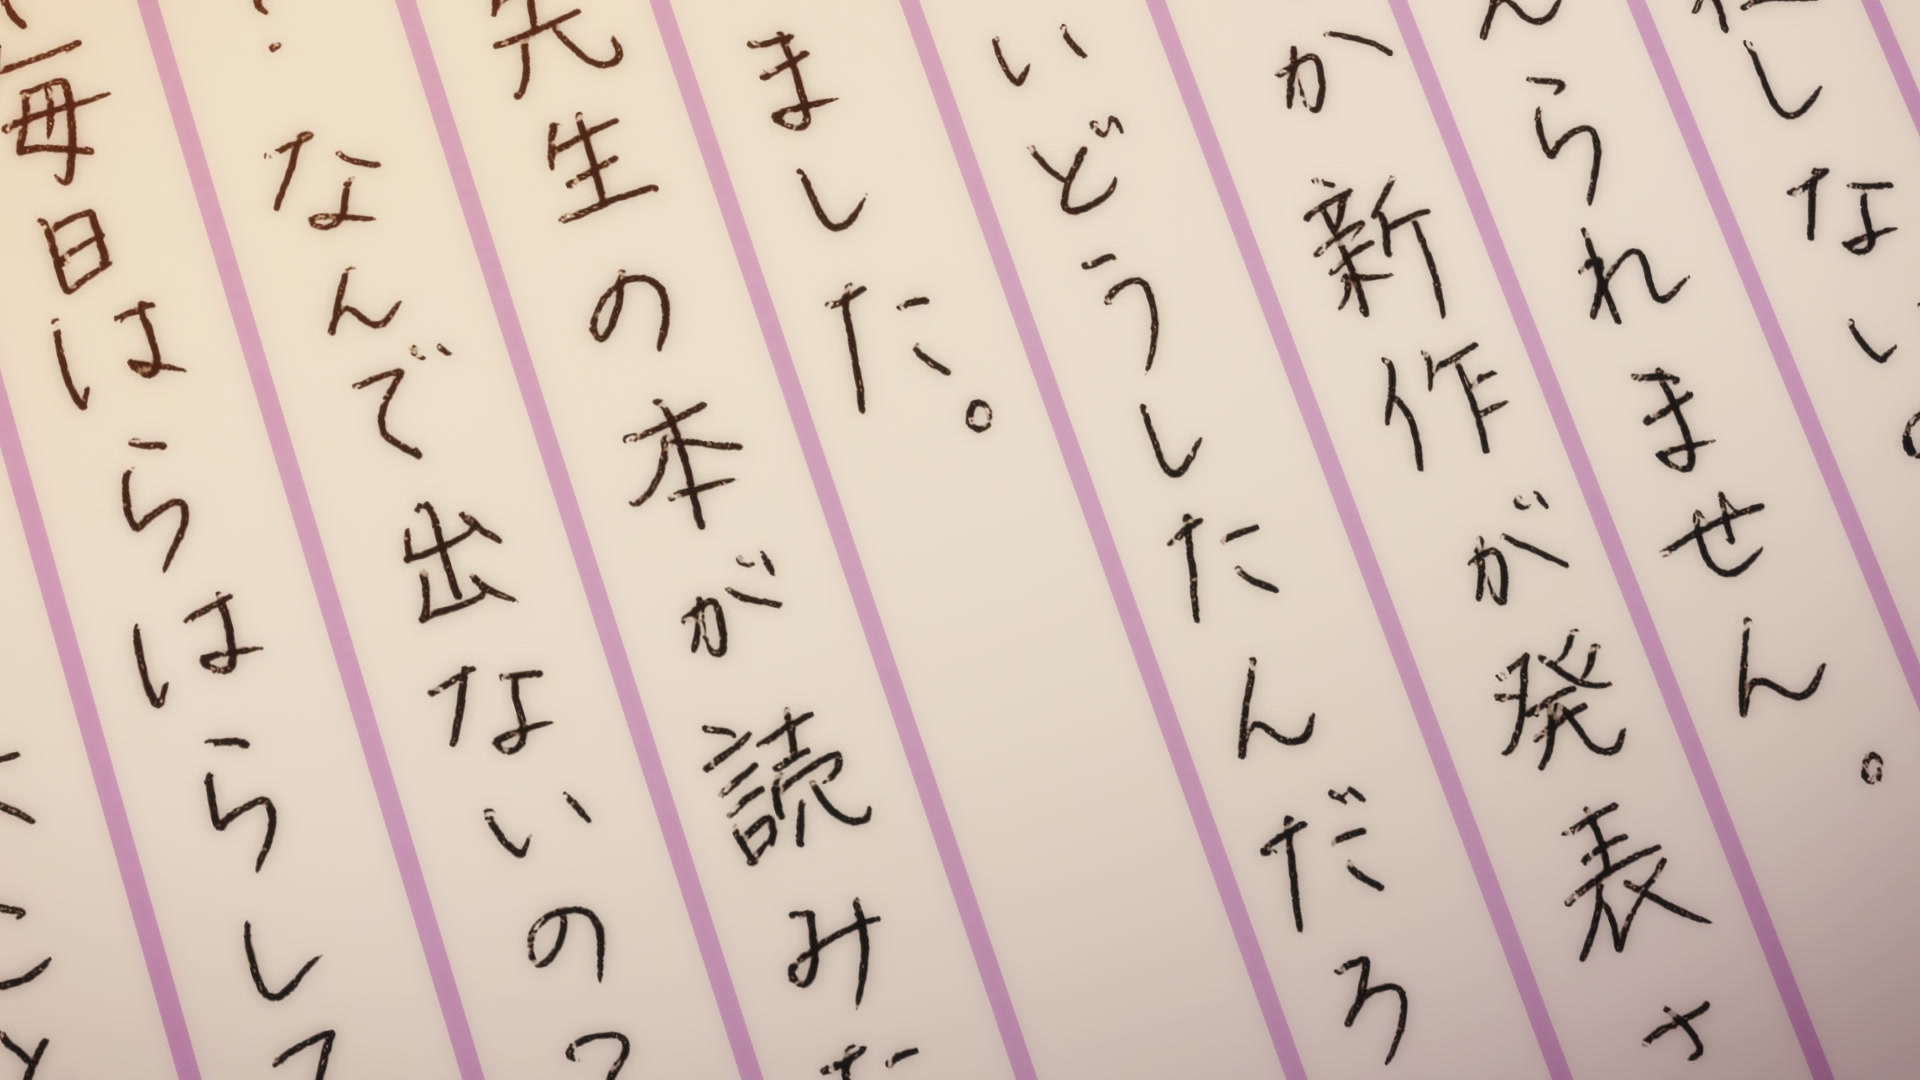 しない
られません。
か新作が発表さ
いどうしたんだろ
ました。
先生の本が読みた
？なんで出ないの？
毎日はらはらして